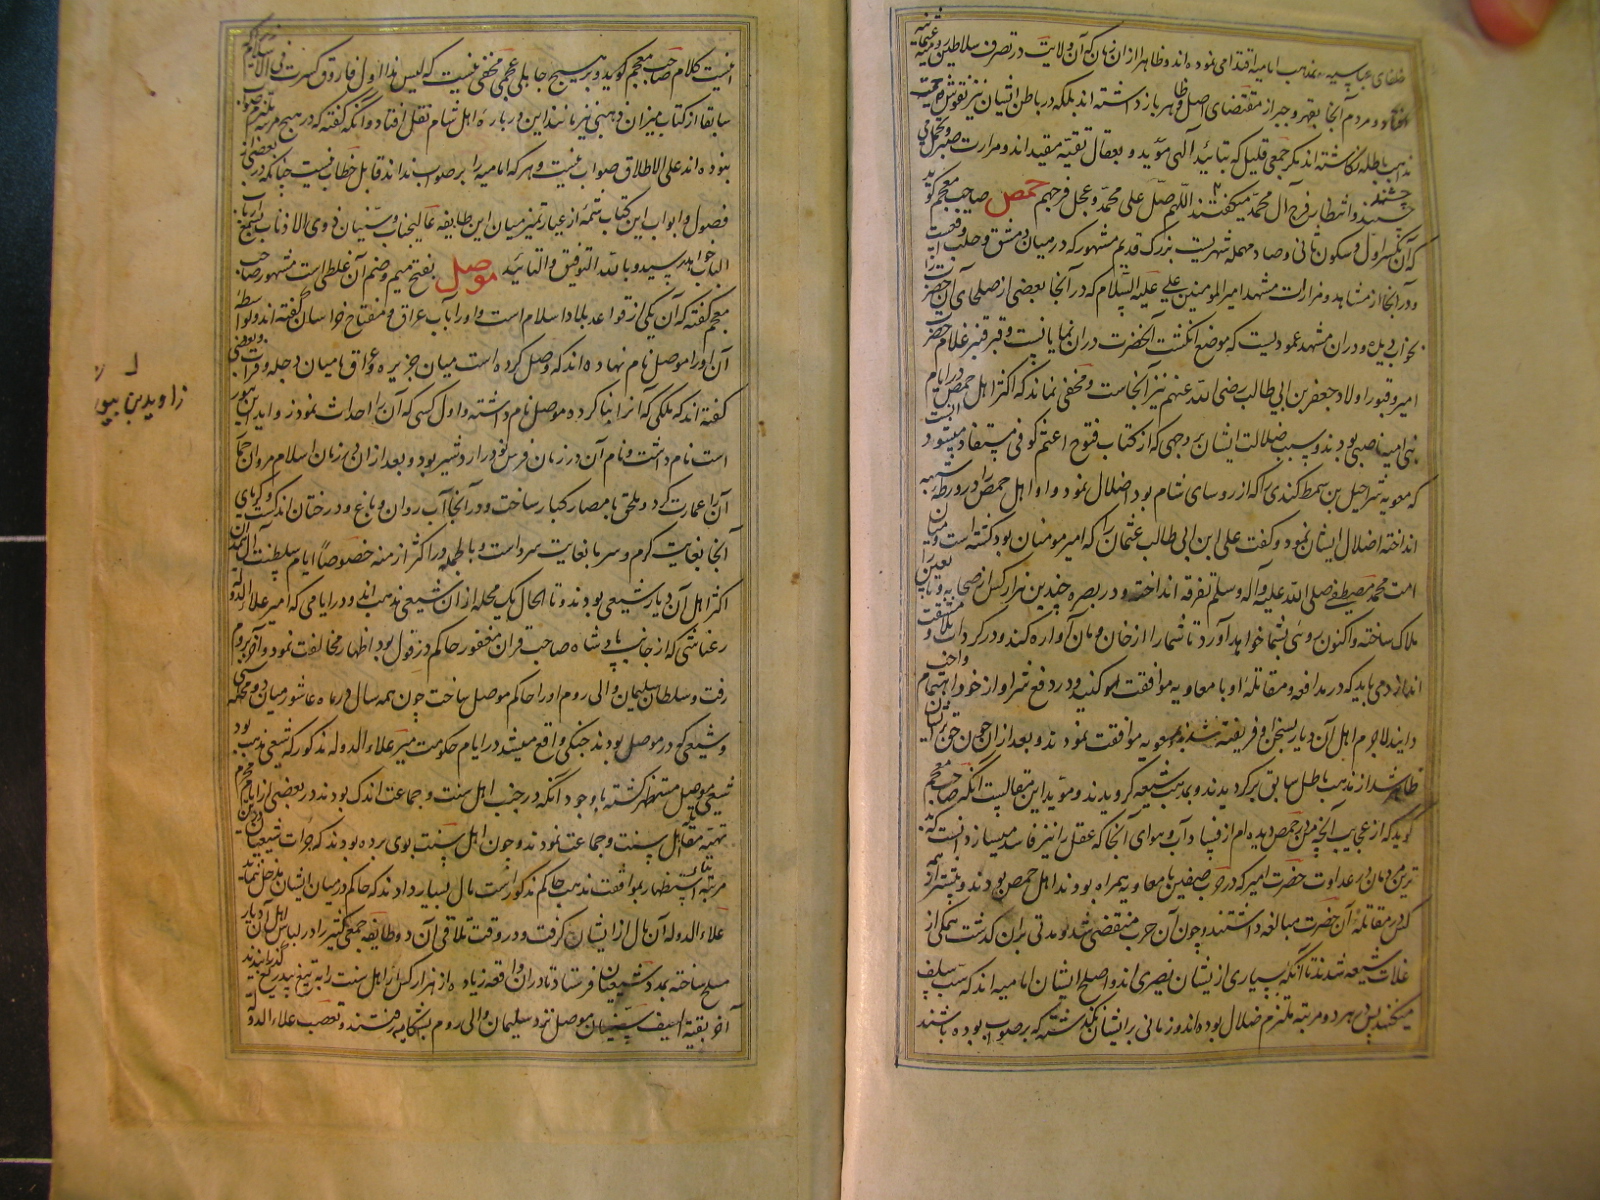 خلفای عباسیه بمذهب امامیه اقتدا می نموده اند و ظاهرا از ان زمان که آن ولایت در تصرف سلاطین
و مردم آنجا بقهر و جبر از مقتضای اصل و ظاهر باز داشته اند بلکه در باطن ایشان نیز نقوش
مذهب باطله نکاشته اند مگر جمعی قلیل که بتائید آلهی مؤید و بعقال تقیه مقیداند و مرارت صبر
چشند و انتظار فرج آل محمد میکشند اللهم صل علی محمد و عجل فرجهم حمص صاحب معجم گوید
که آن بکسر اول و سکون ثانی و صاد مهمله شهریست بزرگ قدیم مشهور که در میان دمشق و حلب واقعست
و در آنجا از مشاهد و مزارات مشهد امیر المومنین علی علیه السلام که در آنجا بعضی از صلحای آن
بخواب دیده و در ان مشهد عمودیست که موضع انگشت آنحضرت در ان نمایانست و قبر قنبر غلام حضرت
امیر و قبور اولاد جعفر بن ابی طالب رضی الله عنهم نیز آنجاست و مخفی نماند که اکثر اهل حمص در ایام
بنی امیه ناصبی بودند و سبب ضلالت ایشان بر وجهی که از کتاب فتوح اعثم کوفی مستفاد میشود
که معویه شرحبیل بن سمط کندی را که از روسای شام بود اضلال نمود و او اهل حمص را در ورطه شبهه
انداخته اضلال ایشان نمود و گفت علی ابن ابی طالب عثمان را که امیر مومنان بود کشته است و میان
امت محمد مصطفی صلی الله علیه و آله و سلم تفرقه انداخته و در بصره چندین هزار کس از صحابه و تابعین را
هلاک ساخته و اکنون روی بشما خواهد آورد تا شما را از خان و مان آواره کند و در کرداب و مشقت
اندازد می باید که در مدافعه و مقاتله او با معاویه موافقت کنید و در دفع شر او از خود اهتمام
دایند لاجرم اهل آن دیار بسخن او فریفته شده بمعویه موافقت نمودند و بعد از ان چون حق بر ایشان
ظاهر شد از مذهب باطل سابق بر گردیدند و بمذهب شیعه گرویدند و موید این مقالست آنکه صاحب معجم
گوید که از عجایب آنچه من در حمص دیده ام از فساد آب و هوای آنجا که عقل را نیز فاسد میسازد آنست که
ترین مردمان در عداوت حضرت امیر که در حرب صفین با معاویه همراه بودند اهل حمص بودند و بیشتر از همه
کس در مقاتله آن حضرت مبالغه داشتند و چون آن حرب منقضی شد و مدتی بر ان گذشت همگی از
غلات شیعه شدند تا آنکه بسیاری از یشان نصیری اند و اصلح ایشان امامیه اند که سب سلف
میکنند پس در هر دو مرتبه ملتزم ضلال بوده اند و زمانی بر ایشان نگذشته که بر صواب بوده باشند
اینست کلام صاحب معجم گوید و بر هیچ جابلی عجمی مخفی نیست که
سابقا از کتاب میزان ذهبی نیز مانند این در باره اهل شام نقل افتاد و آنکه گفته که در هیچ مرتبه ملتزم صواب
بنوده اند علی الاطلاق صواب نیست و هر که امامیه را بر صواب نداند قابل خطاب نیست چنانکه در بعضی از
فصول و ابواب این کتاب تتمه از عیار تمیز میان این طایفه عالیجناب و سنیان ذوی الاذناب
خواهد رسید و بالله التوفیق و التائید موصل بفتح میم و ضم آن غلط است مشهور صاحب
معجم گفته که آن یکی از قواعد بلاد اسلام است و او را باب عراق و مفتاح خراسان گفته اند و بواسطه
آن او را موصل نام نهاده اند که وصل کرده است میان جزیره و عراق یا میان دجله و فرات و بعضی
گفته اند که ملکی که آنرا بنا کرده موصل نام داشته و اول کسی که آن را احداث نمود
است نام داشت و نام آن در زمان فرس نو اردشیر بود و بعد از ان در زمان اسلام مروان حمار
آن را عمارت کرد و ملحق بامصار کبار ساخت و در آنجا آب روان و باغ و درختان اندک است و گرمای
آنجا بغایت گرم و سرما بغایت سرد است و بالجمله در اکثر ازمنه خصوصا ایام سلطنت آل حمدان
اکثر اهل آن دیار شیعی بودند و تا الحال یک محله از ان شیعی مذهب اند و در ایامی که امیر علاء الدوله
رعناشی که از جانب پادشاه صاحب قران مغفور حاکم دزفول بود اظهار مخالفت نمود و آخر بروم
رفت و سلطان سلیمان والی روم او را حاکم موصل ساخت چون همه سال در ماه عاشورا میان
و شیعی که در موصل بودند جنگی واقع میشد در ایام حکومت میر علاء الدوله مذکور که شیعی مذهب بود
شیعی موصل مستظهر گشته با وجود آنکه در جنب اهل سنت و جماعت اندک بودند در بعضی از ایام محرم
تهیه مقاتله اهل سنت و جماعت نمودند و چون اهل سنت بوی برده بودند که جرات شیعیان درین
مرتبه استظهار بموافقت مذهب حاکم مذکور است مال بسیار دادند که حاکم در میان ایشان مدخل ننماید
علاء الدوله آن مال از ایشان گرفت و در وقت تلاقی آن دو طایفه جمعی کثیر را در لباس اهل آن دیار
مسلح ساخته بمدد شیعیان فرستاد تا در ان واقعه زیاده از هزار کس از اهل سنت را به تیغ بیدریغ گذرانیدند
آخر بقیه السیف سنیان موصل نزد سلیمان والی روم بشکایه رفتند و تعصب علاء الدوله